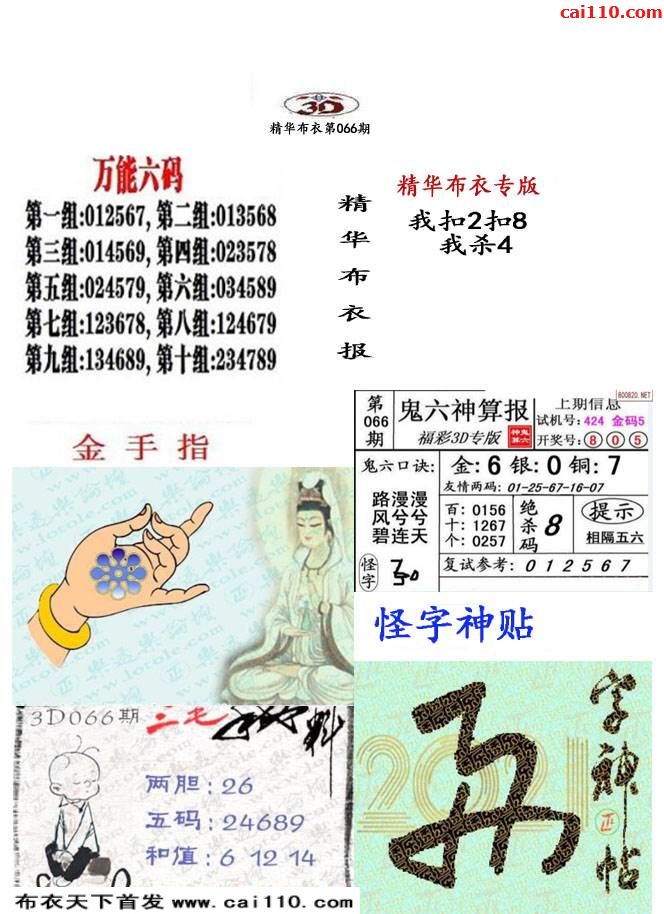 cai110.com
3D
精华布衣第066期
万能六码
第一组:012567, 第二组:013568
第三组:014569, 第四组:023578
第五组:024579, 第六组:034589
第七组:123678, 第八组:124679
第九组:134689, 第十组:234789
精华布衣报
精华布衣专版
我扣2扣8
我杀4
800820.NET
第066期
鬼六神算报
福彩3D专版
上期信息
试机号:424 金码5
开奖号:805
鬼六口诀:
金:6 银:0 铜:7
友情两码: 01-25-67-16-07
路漫漫
风兮兮
碧连天
百: 0156
十: 1267
个: 0257
绝杀码
8
提示
相隔五六
怪字
复试参考: 012567
金手指
怪字神贴
2021
字神帖
正
3D066期
三毛
料
两胆: 26
五码: 24689
和值: 6 12 14
布衣天下首发 www.cai110.com